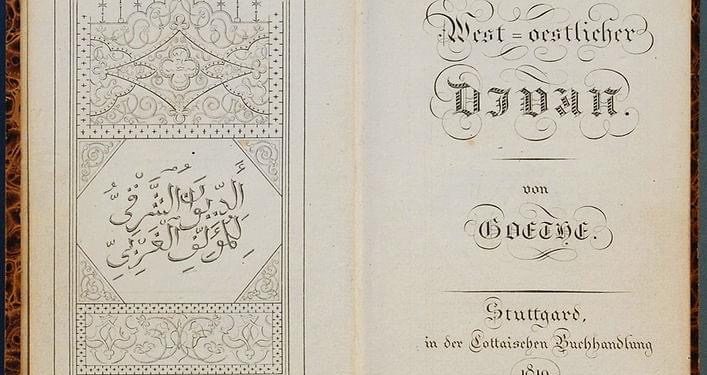 ألديوان الشرقيُّ
لِلمؤَلِّف الغَربيِّ
West=oestlicher
DIVAN.
von
GOETHE.
Stuttgard,
in der Cottaischen Buchhandlung
1819